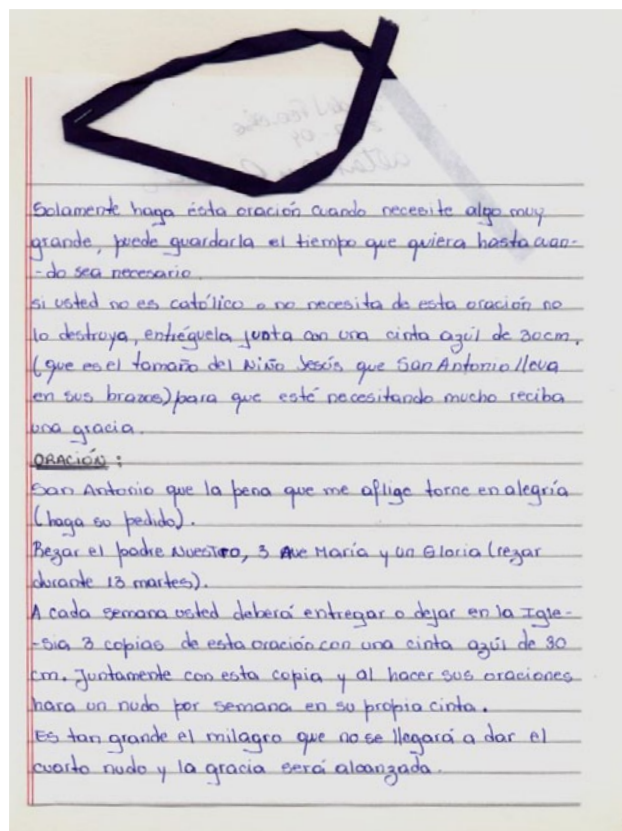 Solamente haga ésta oración cuando necesite algo muy
grande, puede guardarla el tiempo que quiera hasta cuan-
-do sea necesario.
si usted no es católico o no necesita de esta oración no
lo destruya, entréguela junta con una cinta azúl de 30cm.
(que es el tamaño del Niño Jesús que San Antonio lleva
en sus brazos) para que esté necesitando mucho reciba
una gracia.
ORACIÓN:
San Antonio que la pena que me aflige torne en alegría
(haga su pedido).
Rezar el padre Nuestro, 3 Ave María y un Gloria (rezar
durante 13 martes).
A cada semana usted deberá entregar o dejar en la Igle-
-sia 3 copias de esta oración con una cinta azúl de 30
cm. Juntamente con esta copia y al hacer sus oraciones
hara un nudo por semana en su propia cinta.
Es tan grande el milagro que no se llegará a dar el
cuarto nudo y la gracia será alcanzada.